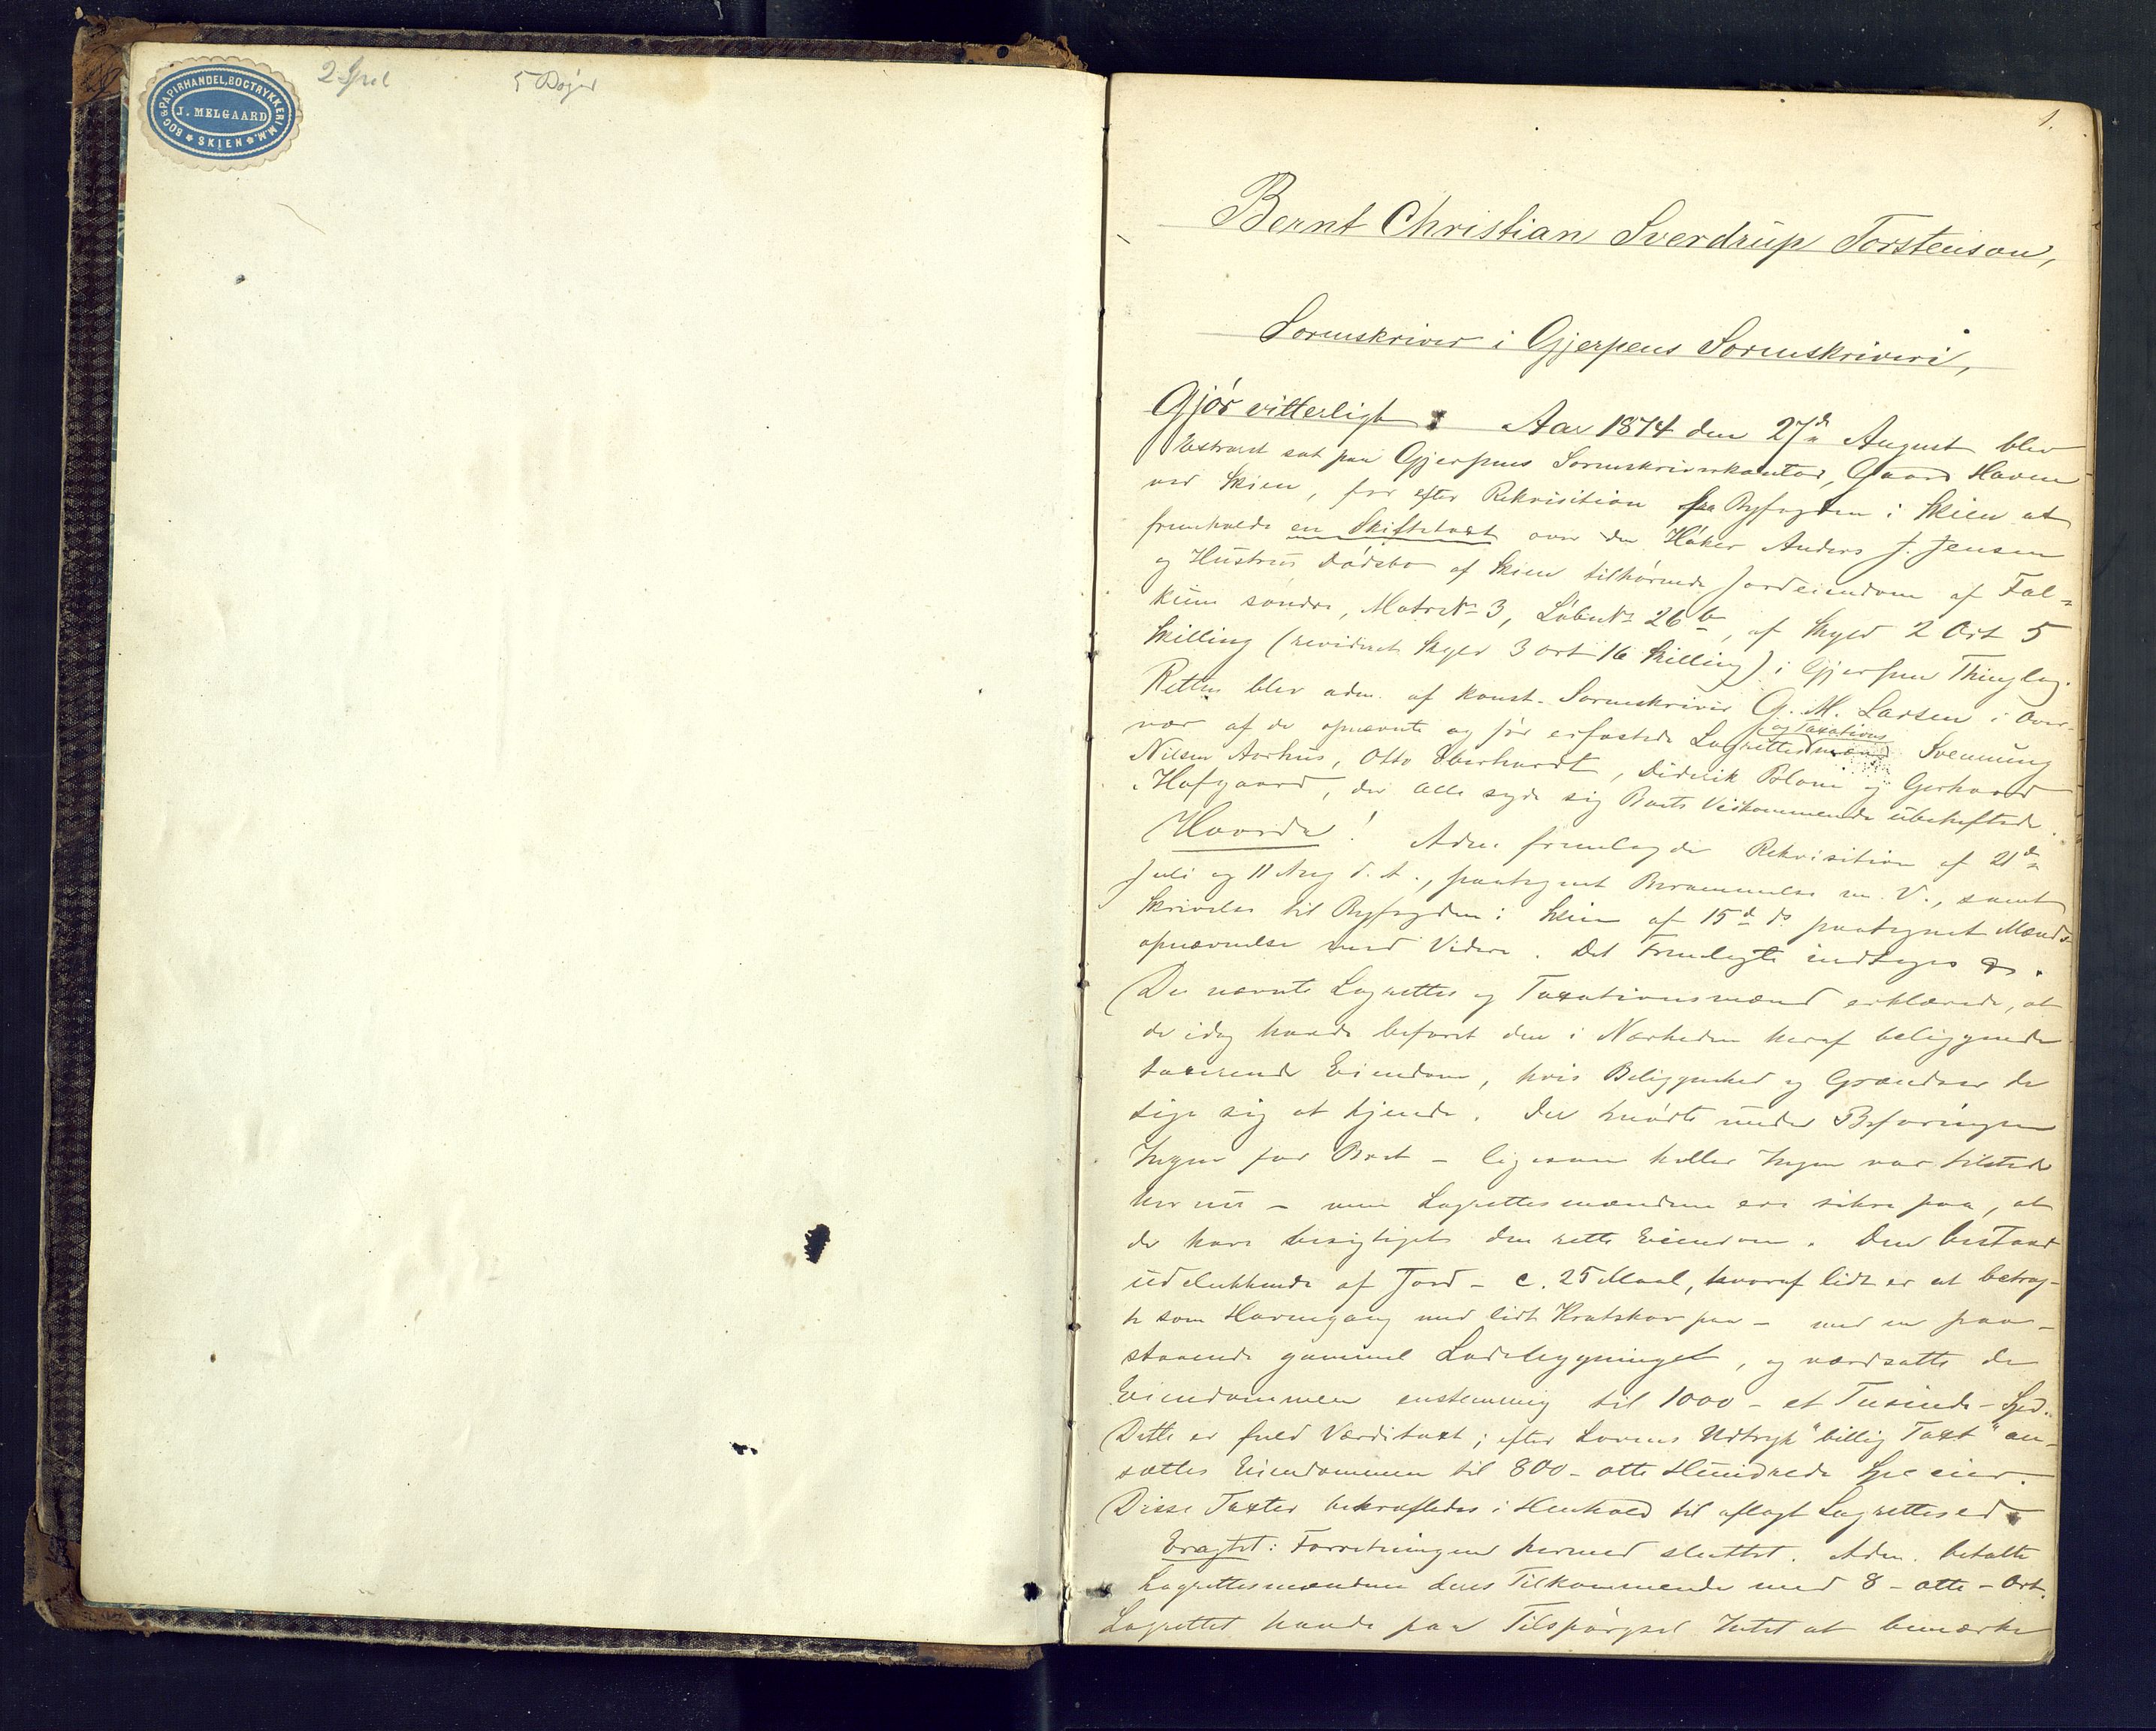 BOG & PAPIRHANDEL, BOGTRYKKERI M.M.
J. MELGAARD
SKIEN
2 Spd
5 Bøger
1.
Bernt Christian Sverdrup Torstenson,
Sorenskriver i Gjerpens Sorenskriveri,
Gjör vitterligt: Aar 1874 den 27de August blev
Extraret sat paa Gjerpens Sorenskriverkontor, Gaard Haven
ved Skien, for efter Rekvisition fra Byfogden i Skien at
fremholde en Skiftetaxt over den Höker Anders J. Jensen
og Hustrus Dödsbo af Skien tilhörende Jordeiendom af Fal-
kum söndre, Matr No 3, Löbe No 26 b, af Skyld 2 Ort 5
Skilling (revideret Skyld 3 ort 16 Skilling) i Gjerpen Thinglag.
Retten blev adm. af konst. Sorenskriver G. M. Larsen i Over-
vær af de opnævnte og för erfostede Lagrettes og Taxationsmænd Svennung
Nilsen Aarhus, Otto Eberhardt, Diderik Blom og Gerhard
Hofgaard, der alle sagde sig Boets Vedkommende ubeheftede.
Hvorda! Adm. fremlagde Rekvisition af 21de
Juli og 11 Aug d. A., paategnet Berammelse m. V., samt
Skrivelse til Byfogden i Skien af 15de ds paategnet Mænds-
opnævnelse med Videre. Det Fremlagte indtages
De nævnte Lagrettes og Taxationsmænd erklærede, at
de idag havde befaret den i Nærheden heraf beliggende
taxerende Eiendom, hvis Beliggenhed og Grændser de
sige sig at kjende. Der mödte under Befaringen
Ingen for Boet – ligesom heller Ingen var tilstede
her nu – men Lagrettesmændene ere sikre paa, at
de have besigtiget den rette Eiendom. Den bestaar
udelukkende af Jord – c. 25 Maal, hvoraf lidt er at betrag-
te som Havnegang med lidt Kratskov paa – med en paa-
staaende gammel Ladebygninget, og værdsatte de
Eiendommen enstemmig til 1000 – et Tusinde – Spd.
Dette er fuld Værditaxt; efter Lovens Udtryk "billig Taxt" an-
sættes Eiendommen til 800 – otte Hundrede Species.
Disse Taxter bekræftedes i Henhold til aflagt Lagrettesed.
Eragtet: Forretningen hermed sluttet. Adm. betalte
Lagrettesmændene deres Tilkommende med 8 – otte – Ort.
Lagrettet havde paa Tilspörgsel Intet at bemærke